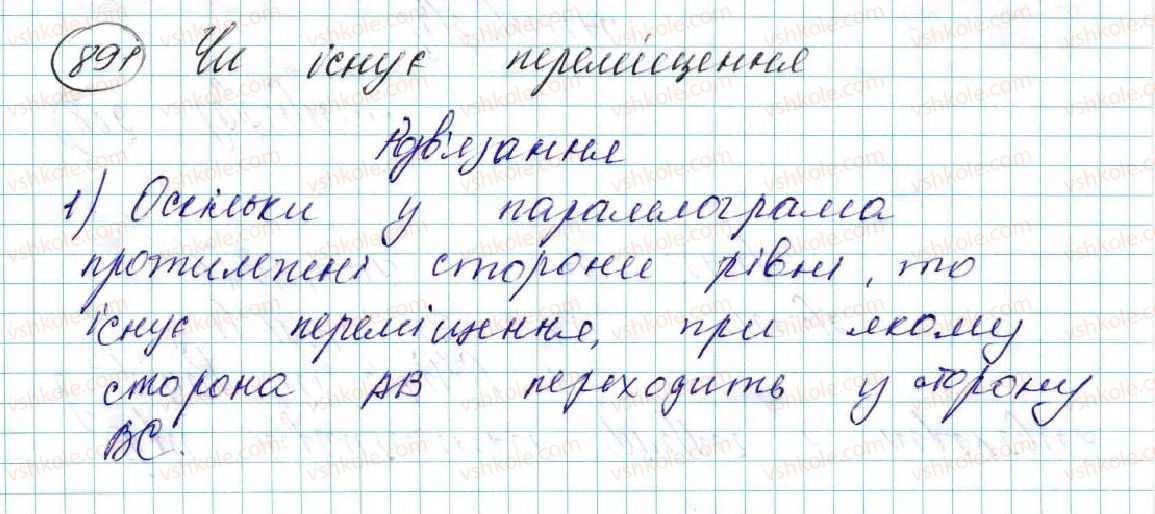 891 Чи існує переміщення
Розв'язання
1) Оскільки у паралелограма
протилежні сторони рівні, то
існує переміщення, при якому
сторона AB переходить у сторону
BC.